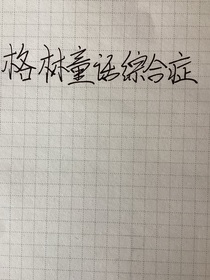 格林童话综合症